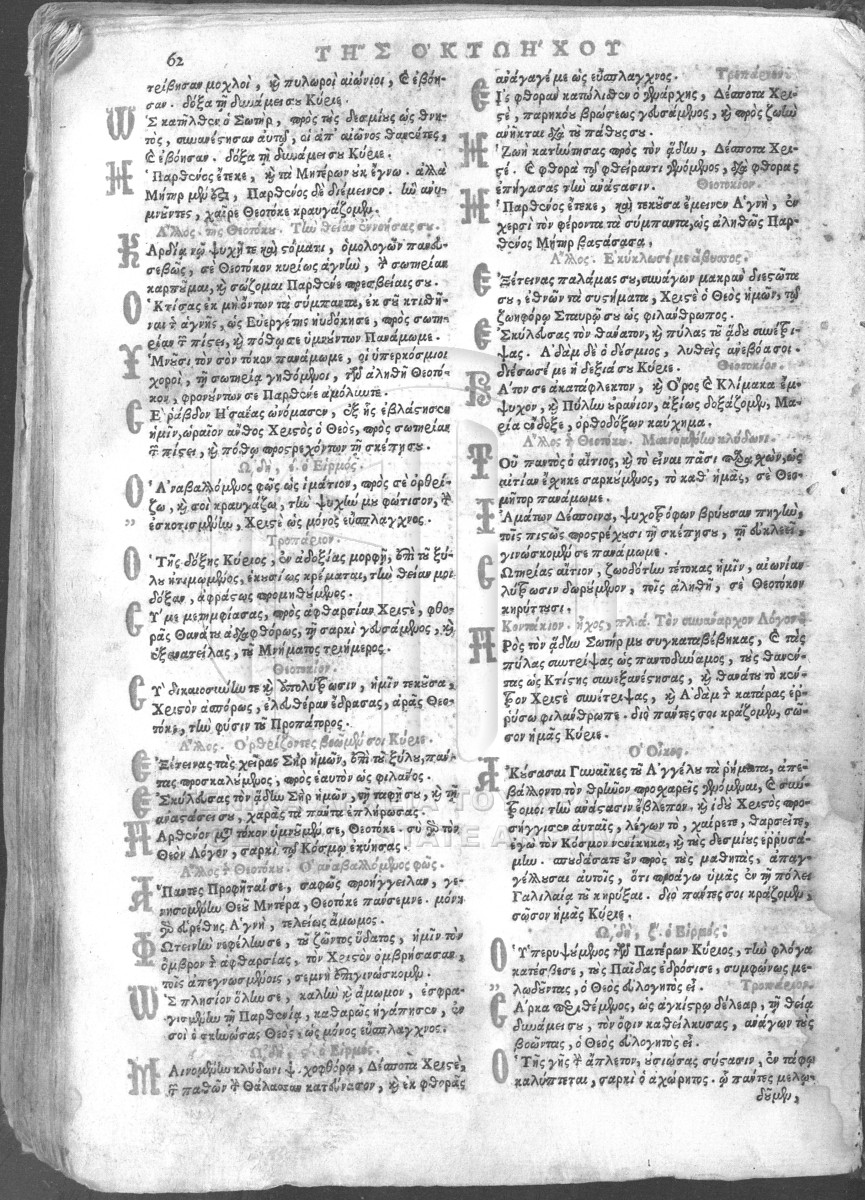 62
ΤΗ͂Σ Ὀ'ΚΤΩΗ'ΧΟΥ
τρίβησαν μοχλοὶ, καὶ πυλωροὶ αἰώνιοι, καὶ ἐβόη-
σαν. δόξα τῇ δυνάμει σου Κύριε.
ὩΣ κατῆλθεν ὁ Σωτὴρ, πρὸς τοὺς δεσμίους ὡς θνη-
τὸς, συνανέστησαν αὐτῷ, οἱ ἀπ' αἰῶνος θανόντες,
καὶ ἐβόησαν. δόξα τῇ δυνάμει σου Κύριε.
Ἡ Παρθένος ἔτεκε, καὶ τὰ Μητέρων οὐκ ἔγνω. ἀλλὰ
Μήτηρ μέν ἐστι, Παρθένος δὲ διέμεινεν. ἣν ἀνυ-
μνοῦντες, χαῖρε Θεοτόκε κραυγάζομεν.
Ἄλλος τῆς Θεοτόκου. Τὴν θείαν ἐννοήσας σου.
ΚΑρδίᾳ νῷ ψυχῇ τε καὶ στόματι, ὁμολογῶν πανευ-
σεβῶς, σὲ Θεοτόκον κυρίως ἁγνὴν, τὴν σωτηρίαν
καρποῦμαι, καὶ σώζομαι Παρθένε πρεσβείαις σου.
Ὁ Κτίσας ἐκ μὴ ὄντων τὰ σύμπαντα, ἐκ σοῦ κτισθῆ-
ναι τῆς ἁγνῆς, ὡς Εὐεργέτης ηὐδόκησε, πρὸς σωτη-
ρίαν τῶν πίστει, καὶ πόθῳ σε ὑμνούντων Πανάμωμε.
ὙΜνοῦσι τὸν σὸν τόκον πανάμωμε, οἱ ὑπερκόσμιοι
χοροὶ, τῇ σωτηρίᾳ γηθόμενοι, τῶν ἀληθῆ Θεοτό-
κον, φρονούντων σε Παρθένε ἀμόλυντε.
ΣΕ ῥάβδον Ἡσαΐας ὠνόμασεν, ἐξ ἧς ἐβλάστησεν
ἡμῖν, ὡραῖον ἄνθος Χριστὸς ὁ Θεὸς, πρὸς σωτηρίαν
τῶν πίστει, καὶ πόθῳ προστρεχόντων τῇ σκέπῃ σου.
ᾨδὴ, ε. ὁ Εἱρμός.
Ὁ Ἀναβαλλόμενος φῶς ὡς ἱμάτιον, πρὸς σὲ ὀρθρί-
ζω, καὶ σοὶ κραυγάζω, τὴν ψυχήν μου φώτισον, τὴν
„ ἐσκοτισμένην, Χριστὲ ὡς μόνος εὔσπλαγχνος.
Τροπάριον.
Ὁ Τῆς δόξης Κύριος, ἐν ἀδοξίας μορφῇ, ἐπὶ τοῦ ξύ-
λου ἠτιμωμένος, ἑκουσίως κρέμαται, τὴν θείαν μοι
δόξαν, ἀφράστως προμηθούμενος.
ΣΥ με μετημφίασας, πρὸς ἀφθαρσίαν Χριστὲ, φθο-
ρᾶς Θανάτου ἀδιαφθόρως, τῇ σαρκὶ γευσάμενος, καὶ
ἐξανατείλας, τοῦ Μνήματος τριήμερος.
Θεοτοκίον.
ΣΥ δικαιοσύνην τε καὶ ἀπολύτρωσιν, ἡμῖν τεκοῦσα,
Χριστὸν ἀσπόρως, ἐλευθέραν ἔδρασας, ἀρᾶς Θεο-
τόκε, τὴν φύσιν τοῦ Προπάτορος.
Ἄλλος. Ὀρθρίζοντες βοῶμέν σοι Κύριε.
ἘΞέτεινας τὰς χεῖρας Σῆρ ἡμῶν, ἐπὶ τοῦ ξύλου, πάν-
τας προσκαλούμενος, πρὸς ἑαυτὸν ὡς φιλανος.
ἘΣκύλευσας τὸν ᾅδην Σῆρ ἡμῶν, τῇ ταφῇ σου, καὶ τῇ
ἀναστάσει σου, χαρᾶς τὰ πάντα ἐπλήρωσας.
ΠΑρθένον μετὰ τόκον ὑμνοῦμέν σε, Θεοτόκε. σὺ γὰρ τὸν
Θεὸν Λόγον, σαρκὶ τῷ Κόσμῳ ἐκύησας.
Ἄλλος τῆς Θεοτόκου. Ὁ ἀναβαλλόμενος φῶς.
Ἅπαντες Προφῆταί σε, σαφῶς προήγγειλαν, γε-
νησομένην Θεοῦ Μητέρα, Θεοτόκε πάνσεμνε. μόνη
γὰρ εὑρέθης Ἁγνὴ, τελείως ἄμωμος.
ΦΩτεινὴν νεφέλην σε, τοῦ ζῶντος ὕδατος, ἡμῖν τὸν
ὄμβρον τῆς ἀφθαρσίας, τὸν Χριστὸν ὀμβρήσασαν
τοῖς ἀπεγνωσμένοις, σεμνὴ ἐπιγινώσκομεν.
ὩΣ πλησίον ὅλην σε, καλὴν καὶ ἄμωμον, ἐσφρα-
γισμένην τῇ Παρθενίᾳ, καθαρῶς ἠγάπησεν, ἐν
σοὶ ὁ σκηνώσας Θεὸς, ὡς μόνος εὔσπλαγχνος.
ᾨδὴ, ς. ὁ Εἱρμός.
ΜΑινομένην κλύδωνι ψυχοφθόρῳ, Δέσποτα Χριστὲ,
τῶν παθῶν τὴν Θάλασσαν κατεύνασον, καὶ ἐκ φθορᾶς
ἀνάγαγέ με ὡς εὔσπλαγχνος. Τροπάριον.
ΕἸς φθορὰν κατώλισθεν ὁ γενάρχης, Δέσποτα Χρι-
στὲ, παρηκόου βρώσεως γευσάμενος, καὶ πρὸς ζωὴν
ἀνῆκται διὰ τοῦ πάθους σου.
Ἡ Ζωὴ κατήντησας πρὸς τὸν ᾅδην, Δέσποτα Χρι-
στέ. καὶ φθορὰ τῷ φθείραντι γενόμενος, διὰ φθορᾶς
ἐπήγασας τὴν ἀνάστασιν. Θεοτοκίον.
Ἡ Παρθένος ἔτεκε, καὶ τεκοῦσα ἔμεινεν Ἁγνὴ, ἐν
χερσὶ τὸν φέροντα τὰ σύμπαντα, ὡς ἀληθῶς Παρ-
θένος Μήτηρ βαστάσασα.
Ἄλλος. Ἐκύκλωσέ με ἄβυσσος.
ἘΞέτεινας παλάμας σου, συνάγων μακρὰν διεστῶτα
σου, ἐθνῶν τὰ συστήματα, Χριστὲ ὁ Θεὸς ἡμῶν, τῷ
ζωηφόρῳ Σταυρῷ σου ὡς φιλάνθρωπος.
ἘΣκύλευσας τὸν θάνατον, καὶ πύλας τοῦ ᾅδου συνέτρι-
ψας. Ἀδὰμ δὲ ὁ δέσμιος, λυθεὶς ἀνεβόα σοι.
διέσωσέ με ἡ δεξιά σου Κύριε. Θεοτοκίον.
ΒΑτόν σε ἀκατάφλεκτον, καὶ Ὄρος καὶ Κλίμακα ἔμ-
ψυχον, καὶ Πύλην οὐράνιον, ἀξίως δοξάζομεν, Μα-
ρία ἔνδοξε, ὀρθοδόξων καύχημα.
Ἄλλος τῆς Θεοτόκου. Μαινομένην κλύδωνι.
ΤΟῦ παντὸς ὁ αἴτιος, καὶ τὸ εἶναι πᾶσι παρασχὼν, ὡς
αἰτίαν ἔσχηκε σαρκούμενος, τὸ καθ' ἡμᾶς, σὲ Θεο-
μῆτορ πανάμωμε.
ἸΑμάτων Δέσποινα, ψυχοτρόφων βρύουσαν πηγὴν,
τοῖς πιστῶς προστρέχουσι τῇ σκέπῃ σου, τῇ εὐκλεεῖ,
γινώσκομέν σε πανάμωμε.
ΣΩτηρίας αἴτιον, ζωοδότην τέτοκας ἡμῖν, αἰωνίαν
λύτρωσιν δωρούμενον, τοῖς ἀληθῆ, σὲ Θεοτόκον
κηρύττουσι.
Κοντάκιον. ἦχος, πλ. ά. Τὸν συνάναρχον Λόγον.
ΠΡὸς τὸν ᾅδην Σωτήρ μου συγκαταβέβηκας, καὶ τὰς
πύλας συντρίψας ὡς παντοδύναμος, τοὺς θανόν-
τας ὡς Κτίστης συνεξανέστησας, καὶ θανάτου τὸ κέν-
τρον Χριστὲ συνέτριψας, καὶ Ἀδὰμ τῆς κατάρας ἐρ-
ρύσω φιλάνθρωπε. διὸ πάντες σοι κράζομεν, σῶ-
σον ἡμᾶς Κύριε.
Ὁ Οἶκος.
ἈΚούσασαι Γυναῖκες τοῦ Ἀγγέλου τὰ ῥήματα, ἀπε-
βάλλοντο τὸν θρῆνον προχαρεῖς γενόμεναι, καὶ σύν-
τρομοι τὴν ἀνάστασιν ἔβλεπον. καὶ ἰδοὺ Χριστὸς προ-
σήγγισεν αὐταῖς, λέγων τὸ, χαίρετε, θαρσεῖτε,
ἐγὼ τὸν Κόσμον νενίκηκα, καὶ τοὺς δεσμίους ἐρρυσά-
μην. σπουδάσατε οὖν πρὸς τοὺς μαθητὰς, ἀπαγ-
γέλλουσαι αὐτοῖς, ὅτι προάγω ὑμᾶς ἐν τῇ πόλει
Γαλιλαίᾳ τοῦ κηρῦξαι. διὸ πάντες σοι κράζομεν,
σῶσον ἡμᾶς Κύριε.
ᾨδὴ, ζ. ὁ Εἱρμός.
Ὁ Ὑπερυψούμενος τῶν Πατέρων Κύριος, τὴν φλόγα
κατέσβεσε, τοὺς Παῖδας ἐδρόσισε, συμφώνως με-
„ λῳδοῦντας, ὁ Θεὸς εὐλογητὸς εἶ. Τροπάριον.
ΣΑρκα περιθέμενος, ὡς ἀγκίστρῳ δέλεαρ, τῇ θείᾳ
δυνάμει σου, τὸν ὄφιν καθείλκυσας, ἀνάγων τοὺς
βοῶντας, ὁ Θεὸς εὐλογητὸς εἶ.
Ὁ Τῆς γῆς τὴν ἄπλετον, οὐσιώσας σύστασιν, ἐν τάφῳ
καλύπτεται, σαρκὶ ὁ ἀχώρητος. ᾧ πάντες μελῳ-
δοῦμεν,